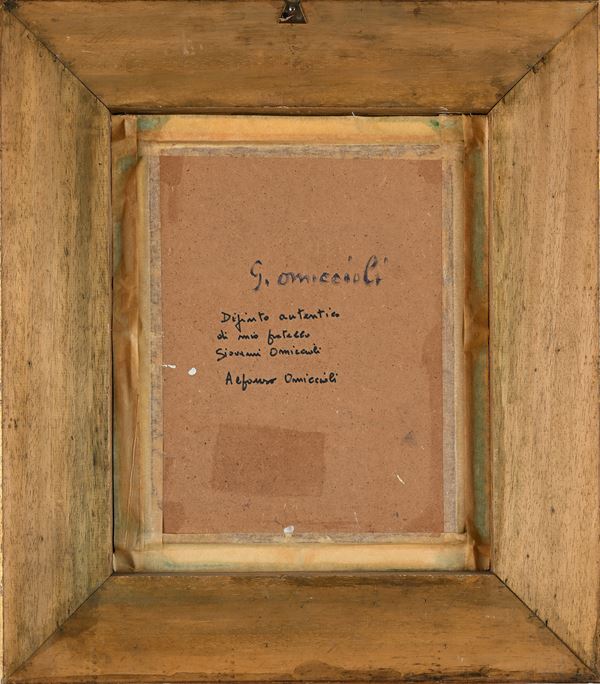 G. omiccioli
Dipinto autentico
di mio fratello
Giovanni Omiccioli
Alfonso Omiccioli